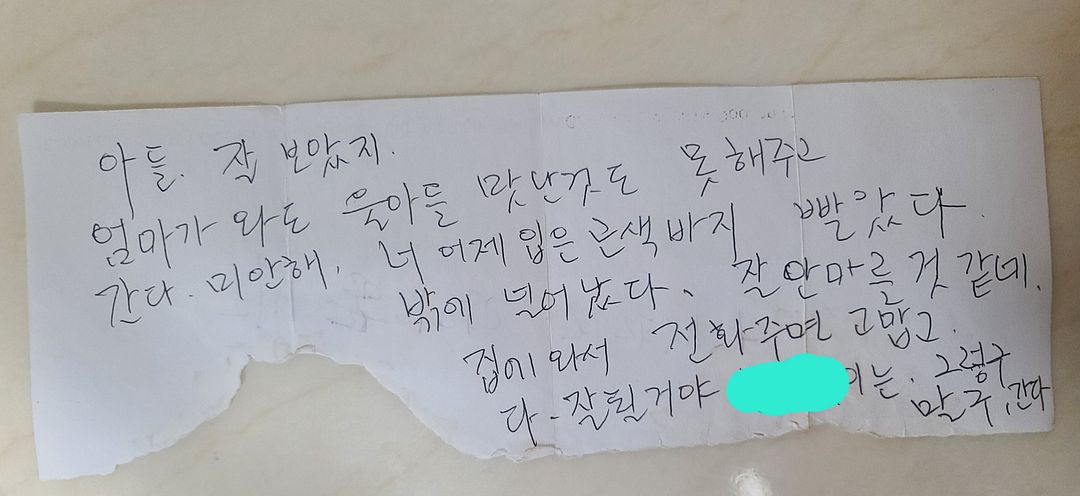 아들. 잘 보았지.
엄마가 와도 울아들 맛난것도 못해주고
간다. 미안해. 너 어제 입은 곤색바지 빨았다.
밖에 널어놨다. 잘 안마를 것 같네.
집에 와서 전화주면 고맙고.
다. 잘될거야 이는. 그렇구
말구. 간다